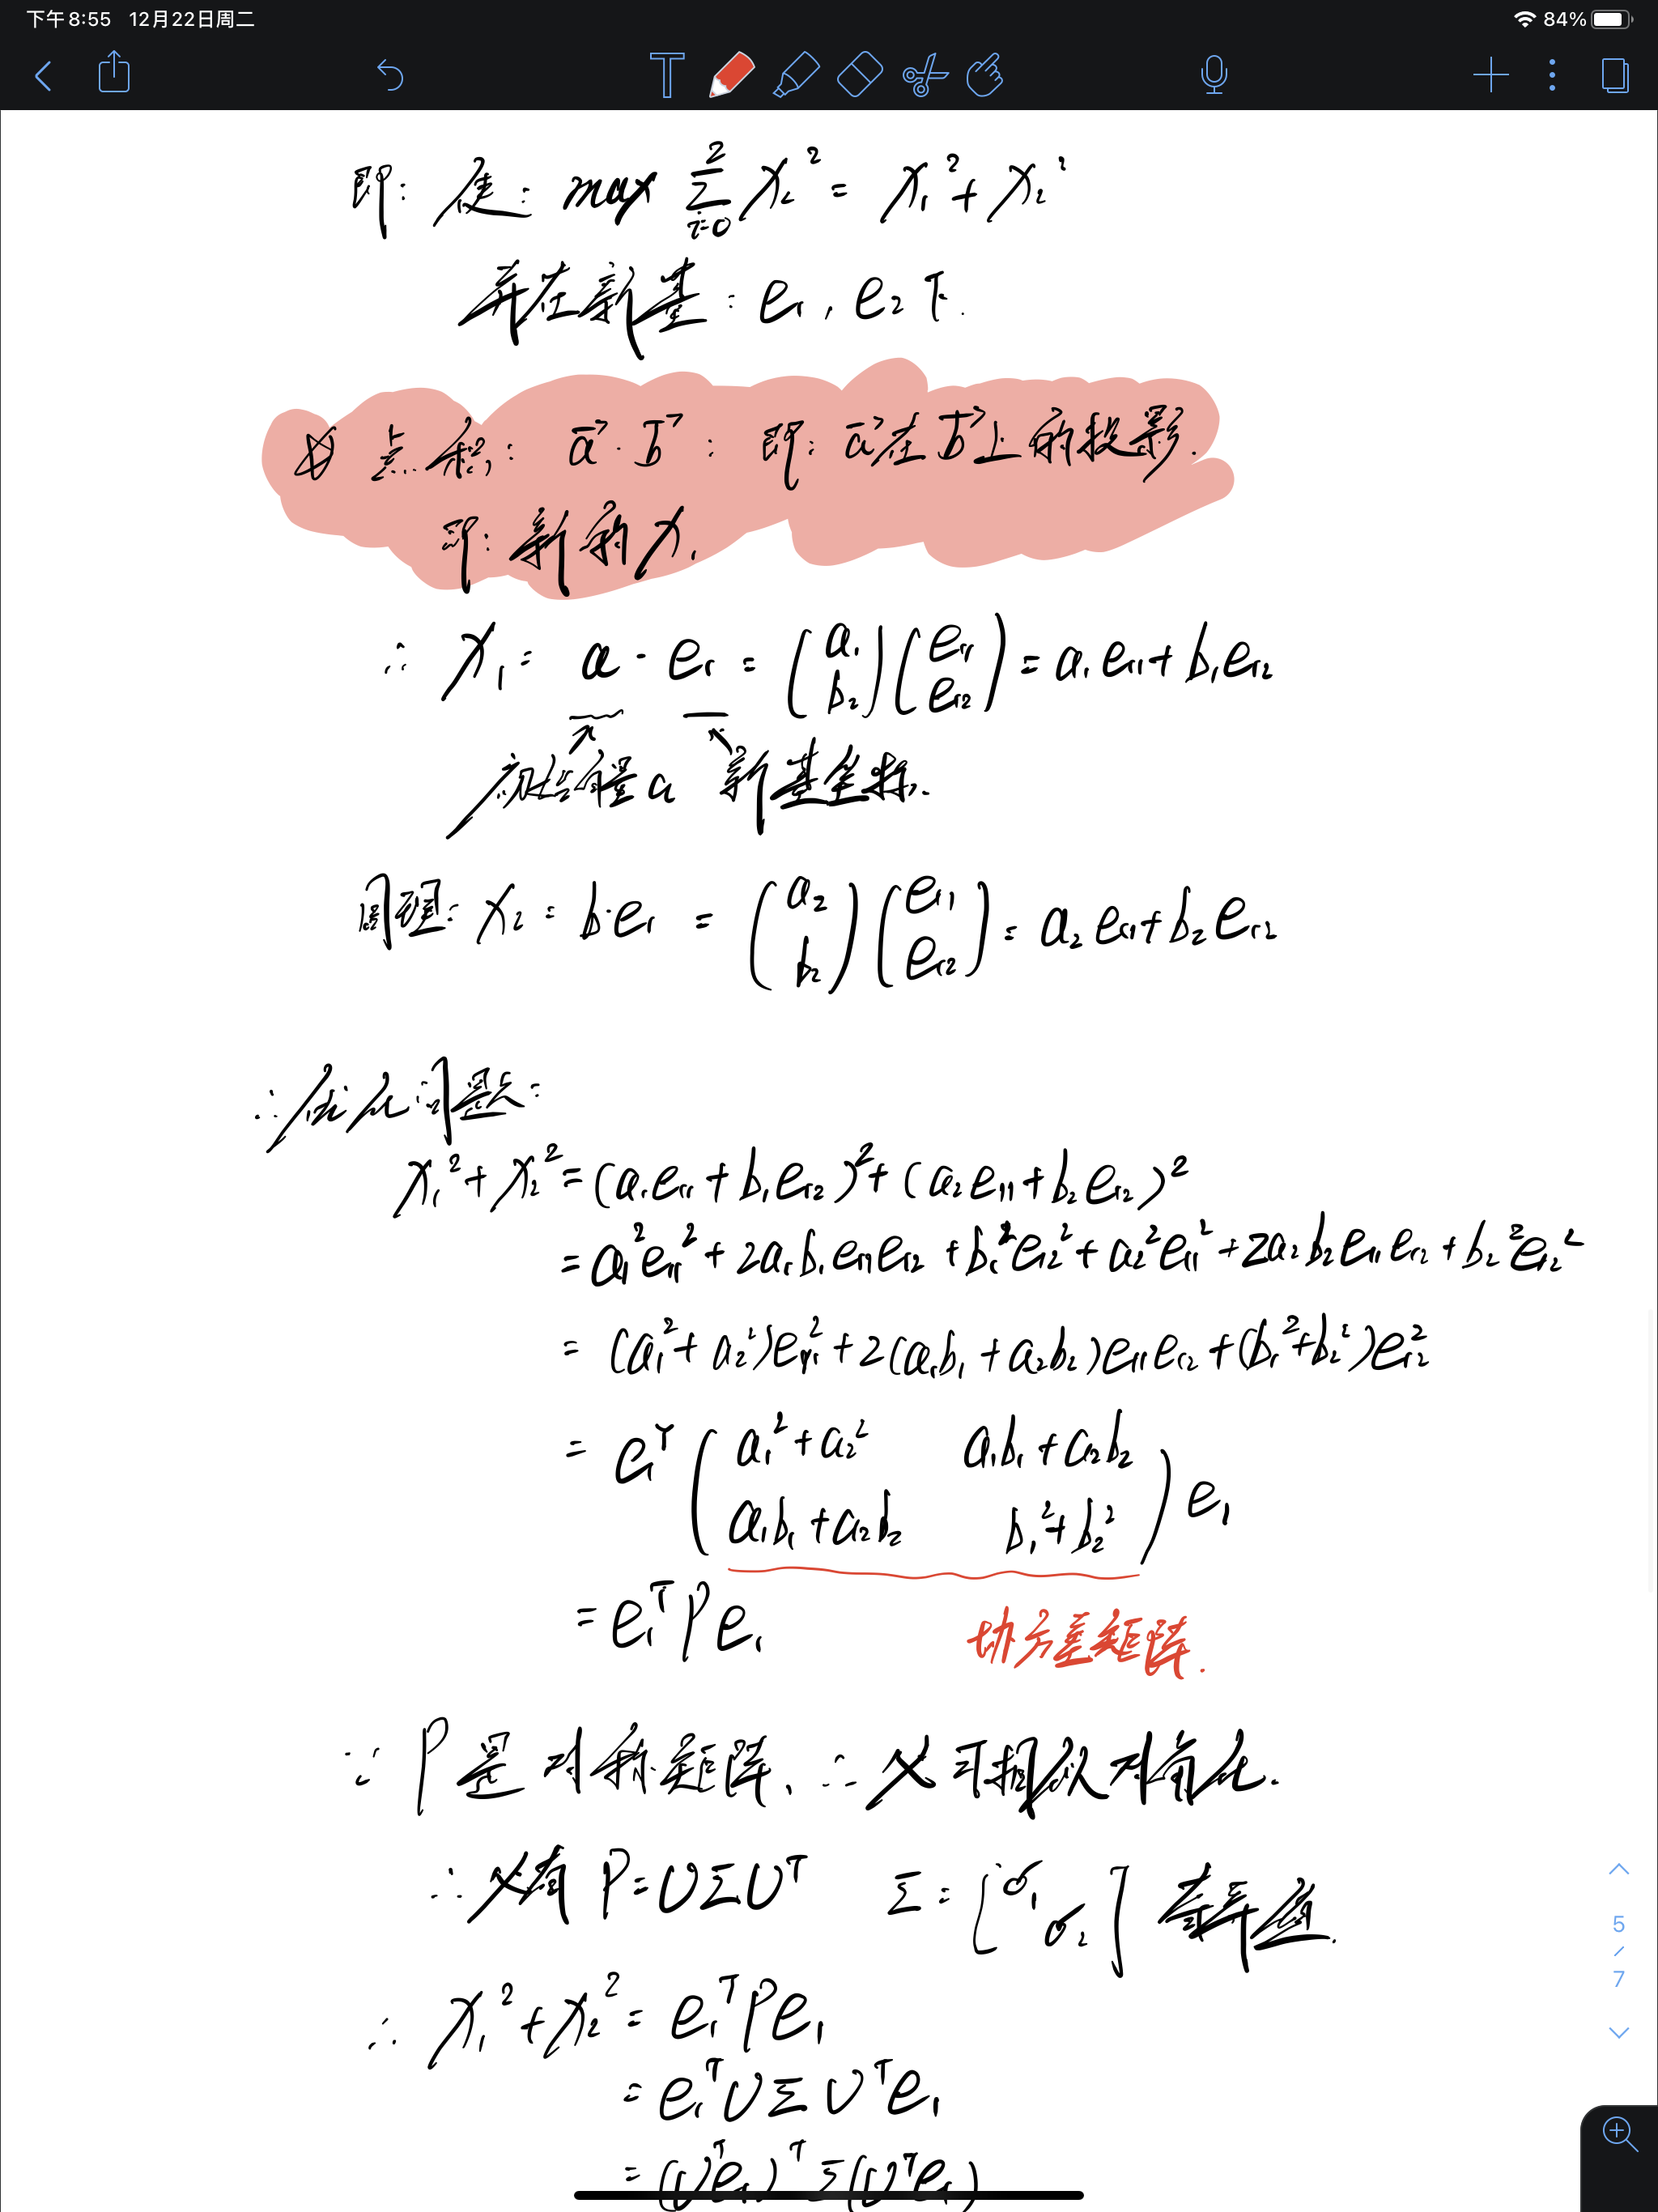 下午8:55 12月22日周二 84%
即: 使: max ∑_{i=0}^{2} X_i² = X₁² + X₂²
并在新基: e₁, e₂下.
点积: a⃗·b⃗: 即: a⃗在b⃗上的投影.
即: 新的X₁
∴ X₁ = a · e₁ = (a₁ b₂)(e₁₁ e₁₂) = a₁e₁₁ + b₁e₁₂
初始向量a 新基坐标.
同理: X₂ = b·e₁ = (a₂ b₂)(e₁₁ e₁₂) = a₂e₁₁ + b₂e₁₂
∴ 优化问题:
X₁² + X₂² = (a₁e₁₁ + b₁e₁₂)² + (a₂e₁₁ + b₂e₁₂)²
= a₁²e₁₁² + 2a₁b₁e₁₁e₁₂ + b₁²e₁₂² + a₂²e₁₁² + 2a₂b₂e₁₁e₁₂ + b₂²e₁₂²
= (a₁² + a₂²)e₁₁² + 2(a₁b₁ + a₂b₂)e₁₁e₁₂ + (b₁² + b₂²)e₁₂²
= e₁ᵀ ( a₁² + a₂² a₁b₁ + a₂b₂
a₁b₁ + a₂b₂ b₁² + b₂² ) e₁
= e₁ᵀPe₁ 协方差矩阵.
∵ P是对称矩阵, ∴ 必可相似对角化.
∴ 必有 P = UΣUᵀ Σ = [σ₁ σ₂] 奇异值.
∴ X₁² + X₂² = e₁ᵀPe₁
= e₁ᵀUΣUᵀe₁
= (Uᵀe₁)ᵀΣ(Uᵀe₁)
5
/
7